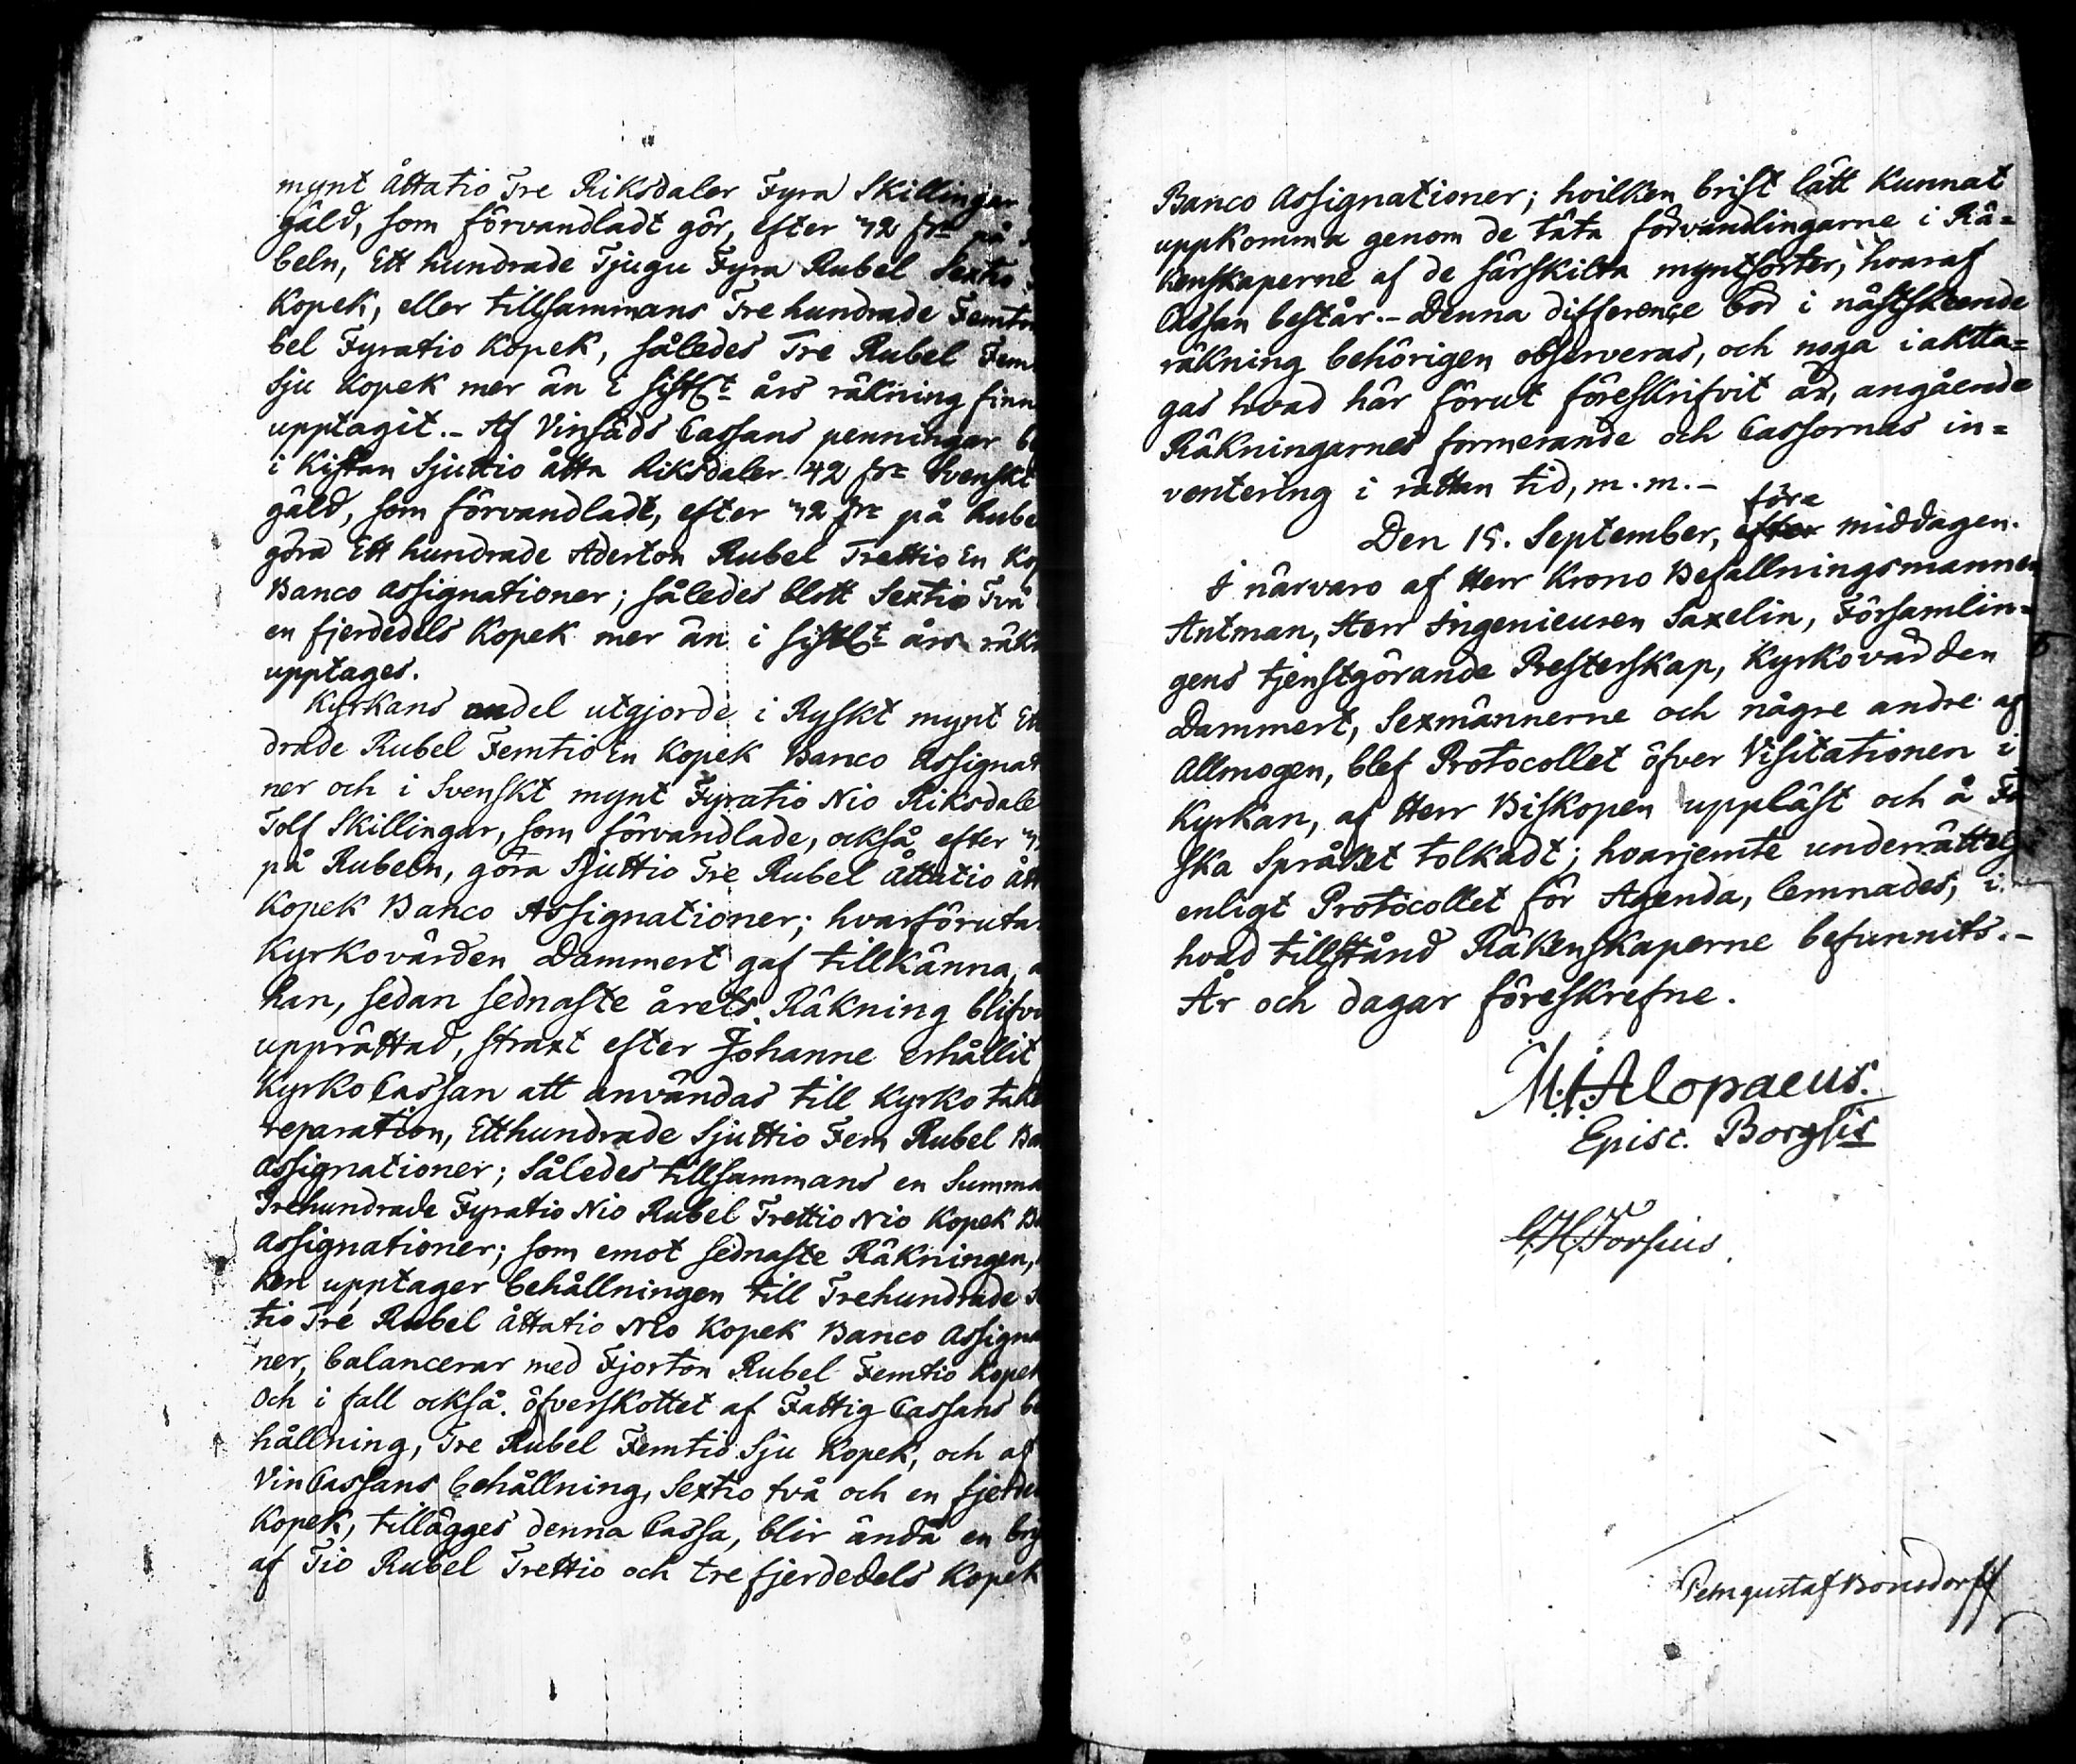 mynt Åttatio Tre Riksdaler Fyra Skillingar
gäld, som förvandladt gör, efter 32 sk på
beln, Ett hundrade Tjugu Fyra Rubel Sextio
Kopek, eller tillsammans Tre hundrade Femton
bel Fyratio Kopek, således Tre Rubel Fem
Sju Kopek mer än i sistl:t års räkning finn
upptagit.- Af Vinsäds Cassans penningar be
i Kistan Sjuttio åtta Riksdaler 42 sk Svenskt
gäld, som förvandlade, efter 32 sk på Rube
göra Ett hundrade Aderton Rubel Trettio En Kop
Banco assignationer; således blott Sextio Två
en fjerdedels Kopek mer än i sistl:t års räkn
upptages.
Kyrkans andel utgjorde i Ryskt mynt Ett
drade Rubel Femtio En Kopek Banco Assignat
ner och i Svenskt mynt Fyratio Nio Riksdale
Tolf Skillingar, som förvandlade, också efter
på Rubeln, göra Sjuttio Tre Rubel Åttatio Åtta
Kopek Banco Assignationer; hvarföruta
Kyrkovärden Dammert gaf tillkänna, a
han, sedan sednaste årets Räkning blifvi
upprättad, straxt efter Johanne erhållit
KyrkoCassan att användas till Kyrko take
reparation, Etthundrade Sjuttio Fem Rubel Ba
Assignationer; Således tillsammans en Summa
Trehundrade Fyratio Nio Rubel Trettio Nio Kopek Ba
Assignationer; som emot sednaste Räkningen,
ken upptager behållningen till Trehundrade S
tio Tre Rubel Åttatio Nio Kopek Banco Assigna
ner, balancerar med Fjorton Rubel Femtio Kopek
Och i fall också öfverskottet af Fattig Cassans be
hållning, Tre Rubel Femtio Sju Kopek, och af
VinCassans behållning, Sextio två och en fjerde
Kopek, tillägges denna Cassa, blir ändå en bri
af Tio Rubel Trettio och tre fjerdedels Kopek
Banco Assignationer; hvilken brist lätt Kunnat
uppkomma genom de täta förvandlingarne i Rä=
kenskaperne af de särskilta myntsorter, hvaraf
Cassan består.- Denna difference bör i nästskeende
räkning behörigen observeras, och noga iaktta=
gas hvad här förut föreskrifvit är, angående
Räkningarnes formerande och Cassornas in=
ventering i rättan tid, m.m.-
före
Den 15. September, efter middagen.
I närvaro af Herr Krono Befallningsmannen
Antman, Herr Ingenieuren Saxelin, Församlin=
gens tjenstgörande Presterskap, Kyrkovärden
Dammert, Sexmännerne och någre andre af
Allmogen, blef Protocollet öfver Visitationen i
Kyrkan, af Herr Biskopen uppläst och å Fi
ska Språket tolkadt; hvarjemte underrättels
enligt Protocollet för Agenda, lemnades, i
hvad tillstånd Räkenskaperne befunnits.-
År och dagar föreskrefne.
M:J:Alopaeus.
Episc. Borgsis
G.H. Forsius.
Pehr gustaf Bonsdorff